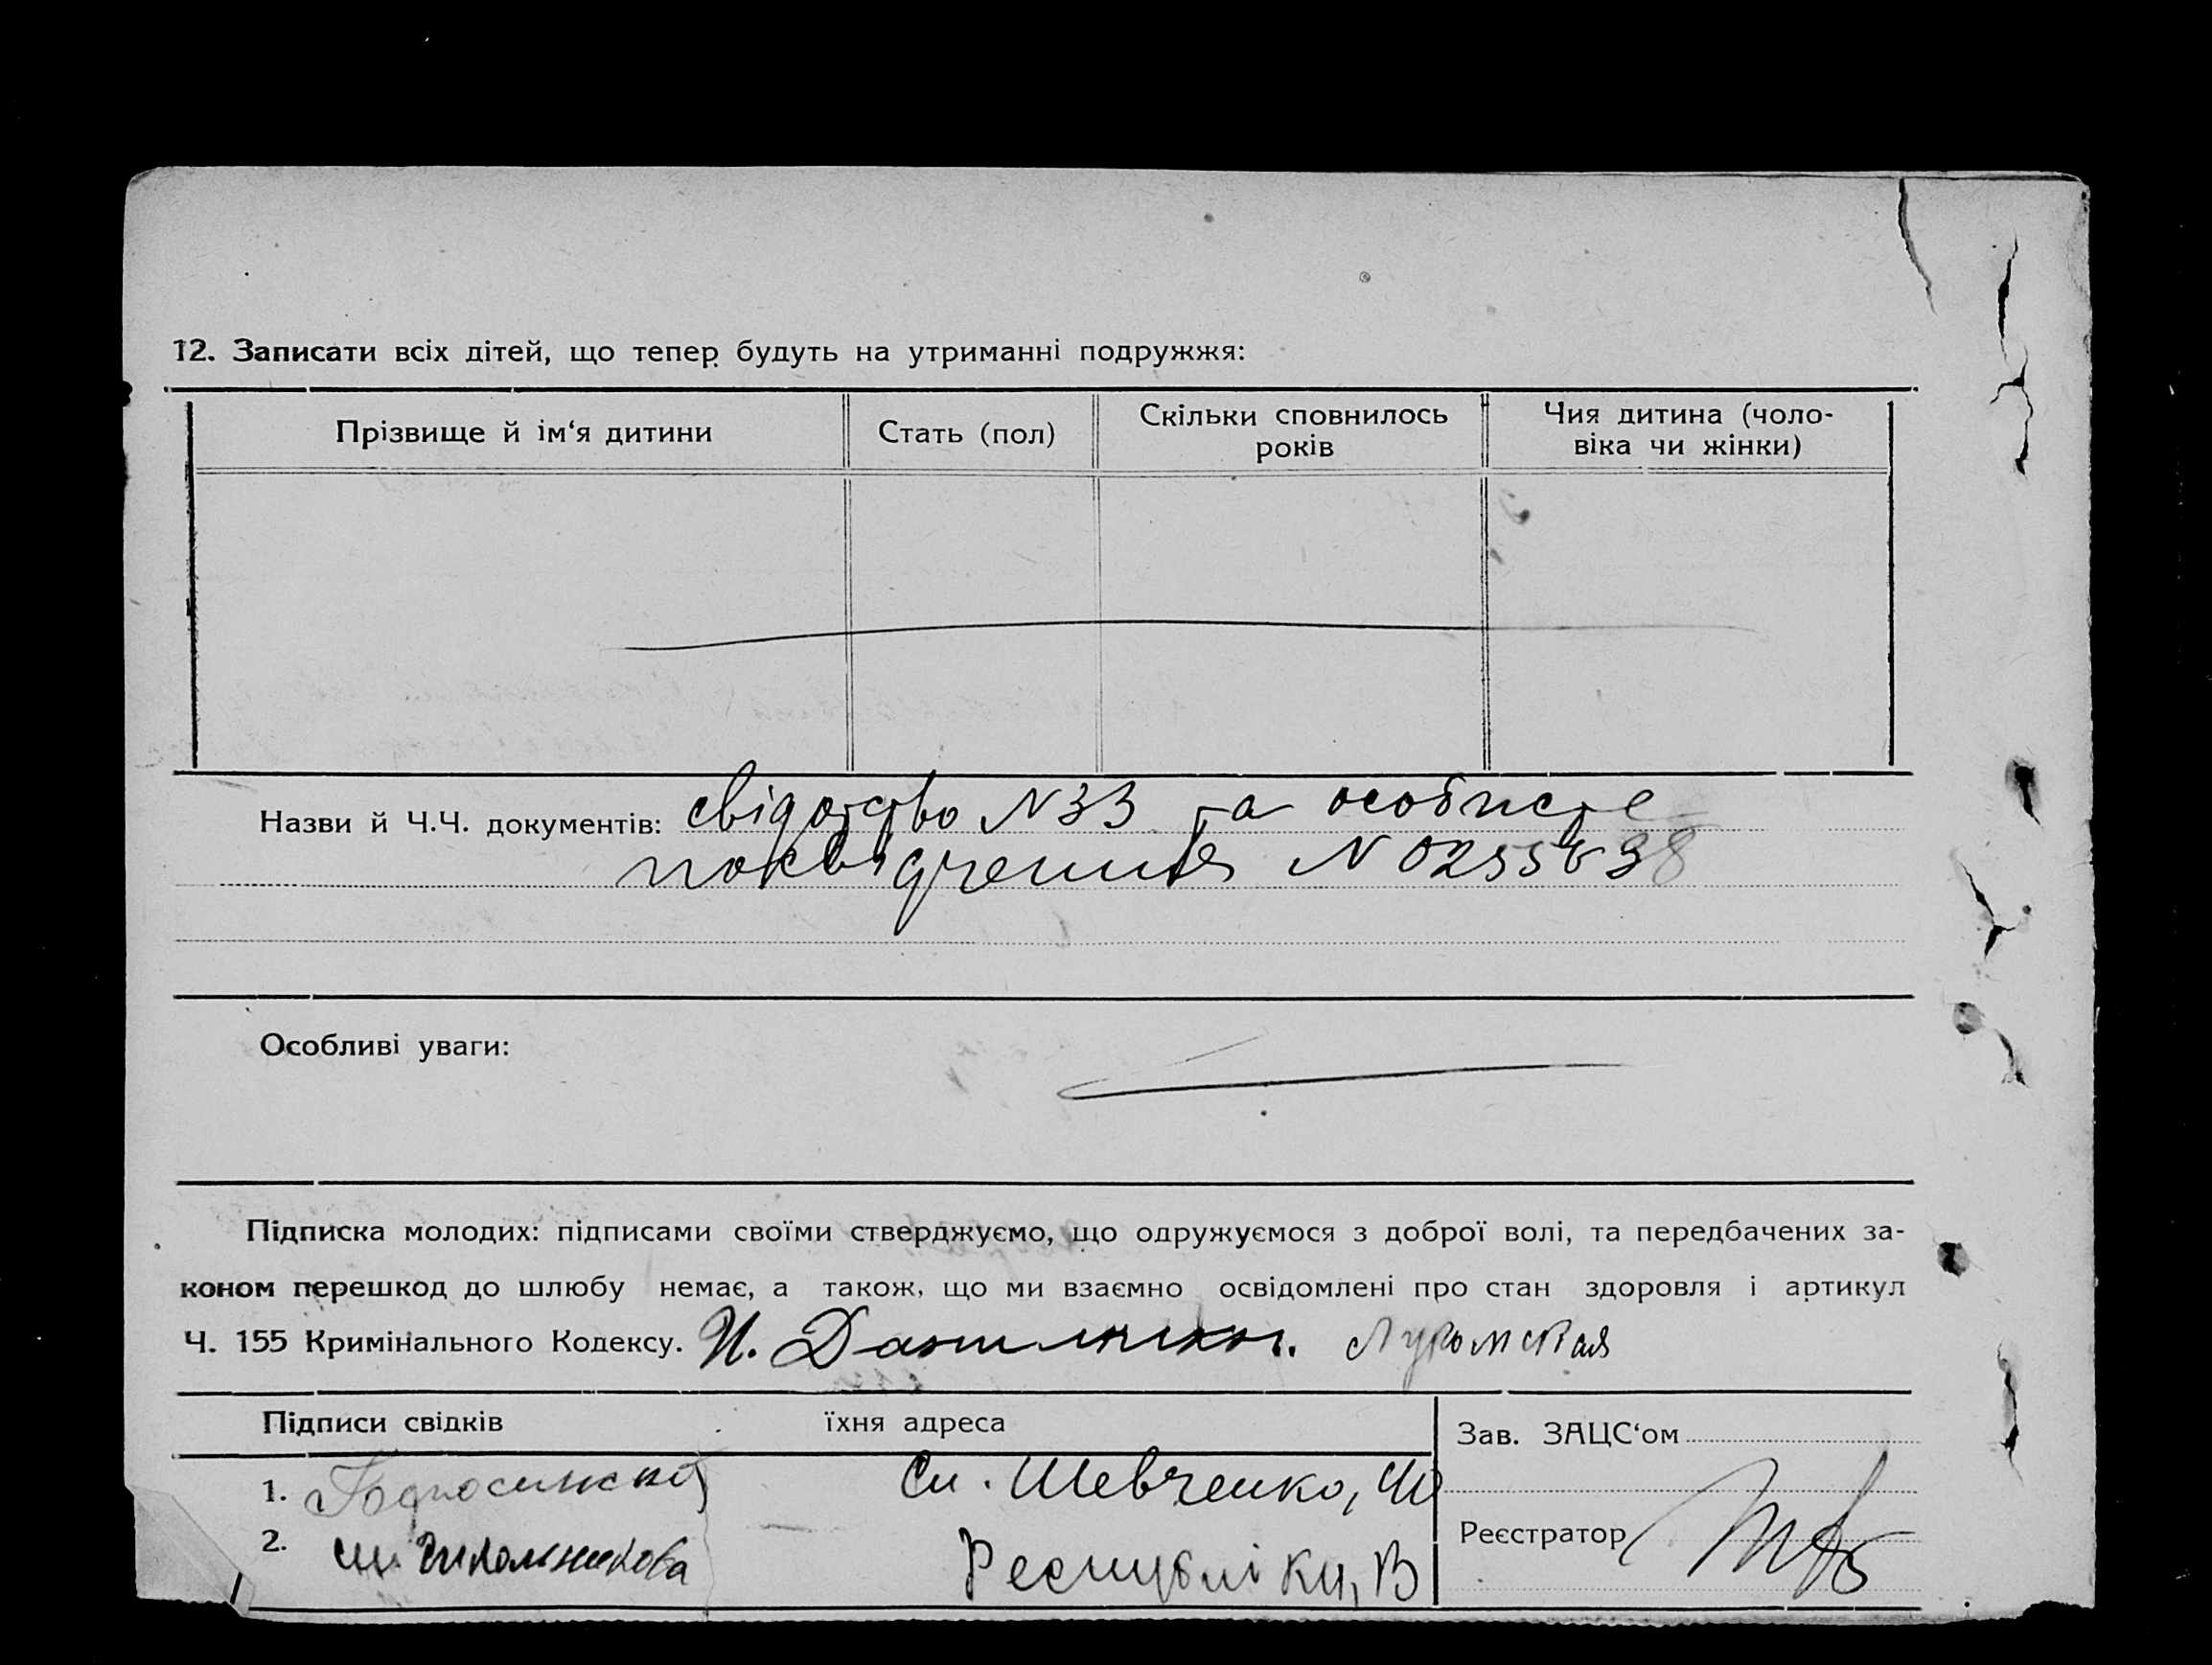 12. Записати всіх дітей, що тепер будуть на утриманні подружжя:
Прізвище й ім‘я дитини
Стать (пол)
Скільки сповнилось
років
Чия дитина (чоло-
віка чи жінки)
Назви й Ч.Ч. документів: свідотство N33 та особисте
посвідчення N
Особливі уваги:
Підписка молодих: підписами своїми стверджуємо, що одружуємося з доброї волі, та передбачених за-
коном перешкод до шлюбу немає, а також, що ми взаємно освідомлені про стан здоровля і артикул
Ч. 155 Кримінального Кодексу. И.
Підписи свідків
їхня адреса
Зав. ЗАЦС‘ом
1. Сп. Шевченко,
Реєстратор
2. Республіки,